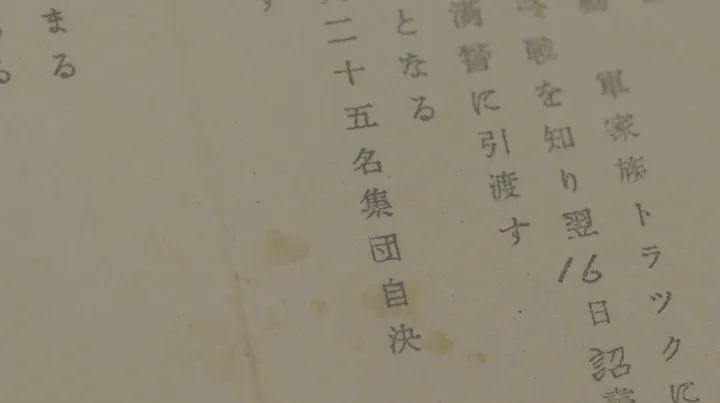 軍家族トラックに
終戦を知り翌16日詔書
満督に引渡す
となる
二十五名集団自決
す
まる
る